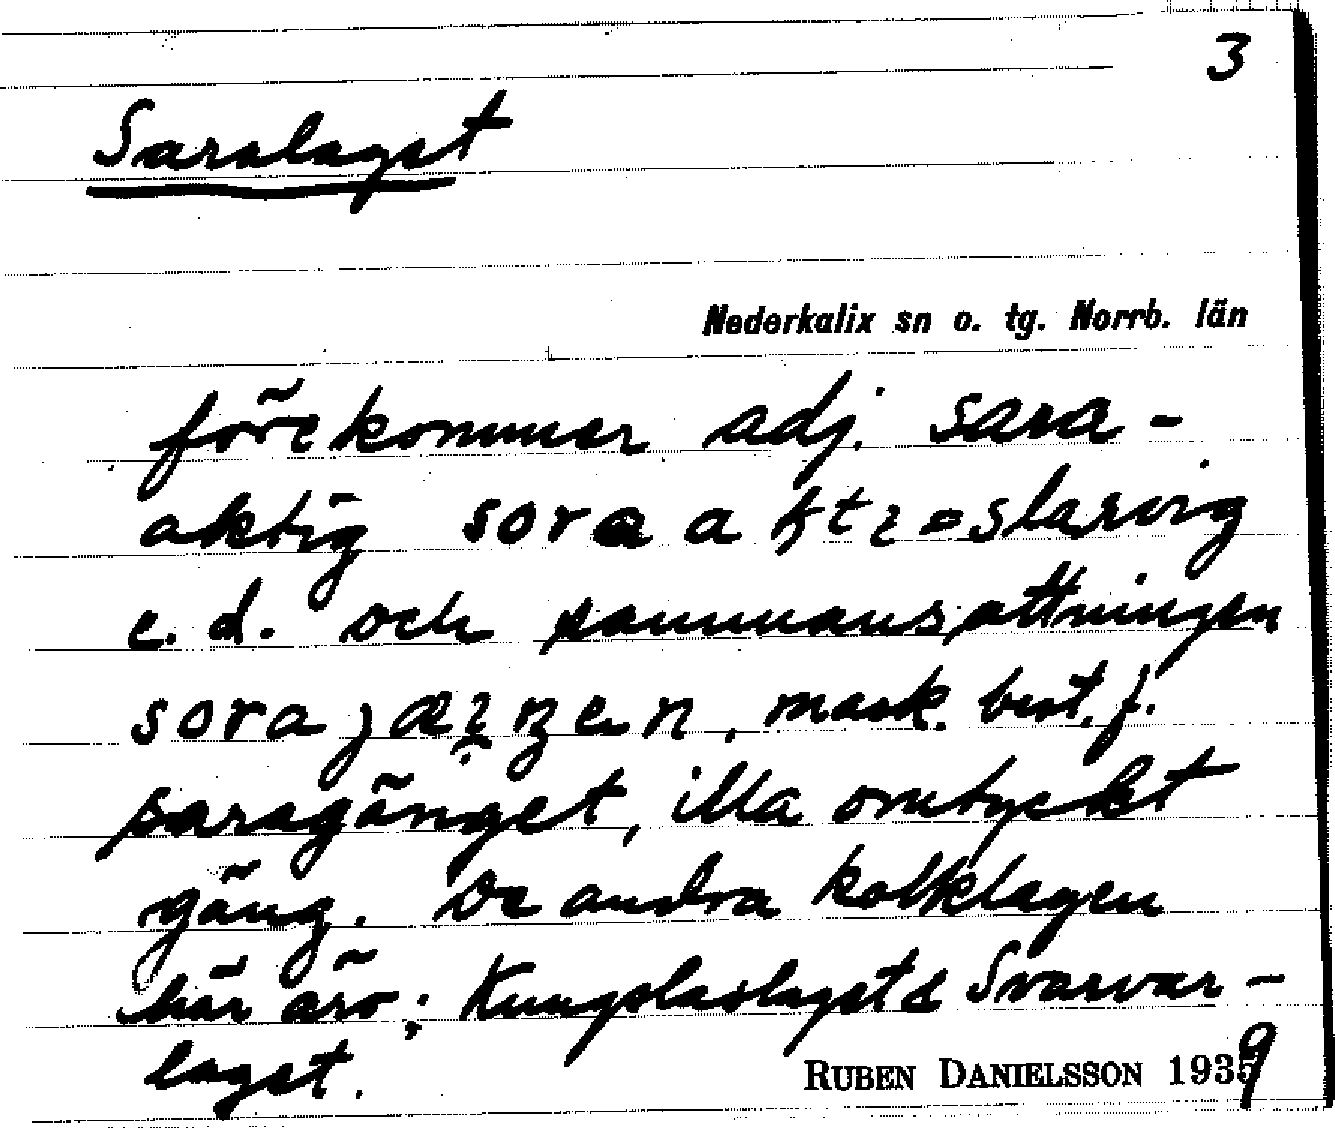 3
Saralaget
Nederkalix sn o. tg. Norrb. län
förekommer adj. sara-
aktig = slarvig
e. d. och sammansättningen
mask. best. f.
saragänget, illa omtyckt
gäng. De andra kolklagen
här äro; & Svarvar-
laget.
RUBEN DANIELSSON 1939